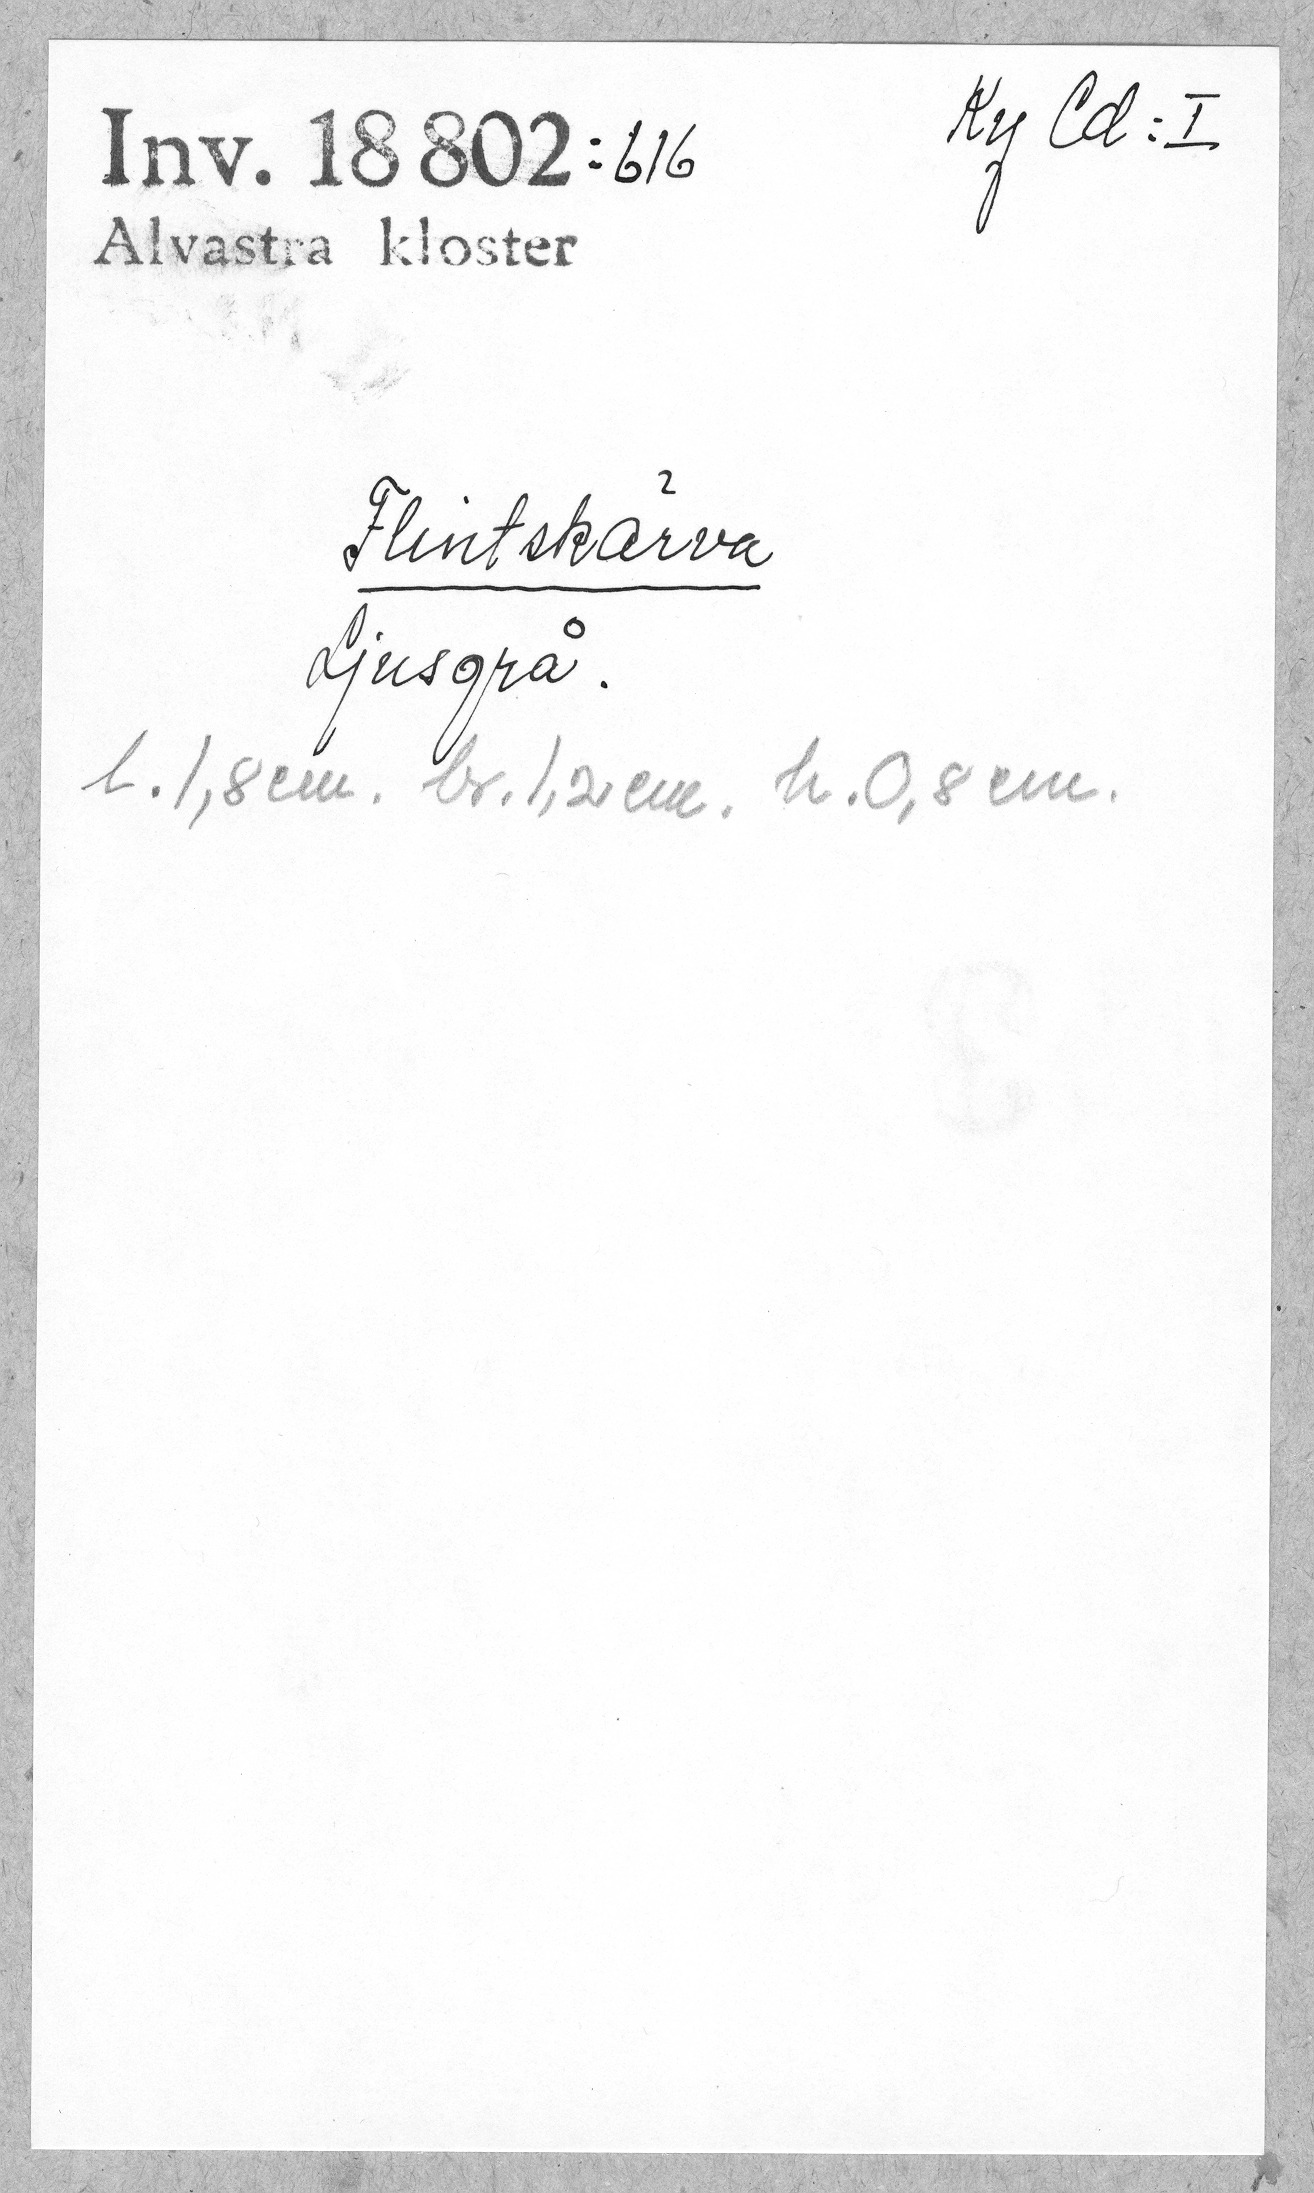 Inv. 18 802:616
Ky Cd:I
Alvastra kloster
Flintskärva
Ljusgrå.
l. 1,8 cm. br. 1,2 cm. h. 0,8 cm.